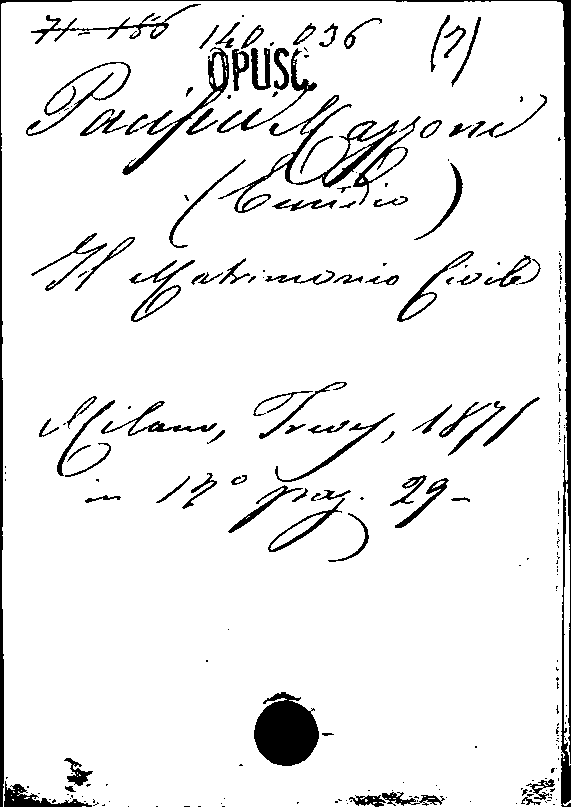 71-186 140.036 (7)
OPUSC.
Pacifici Mazzoni
(Emidio)
Il Matrimonio Civile
Milano, Treves, 1871
in 12° pag. 29-